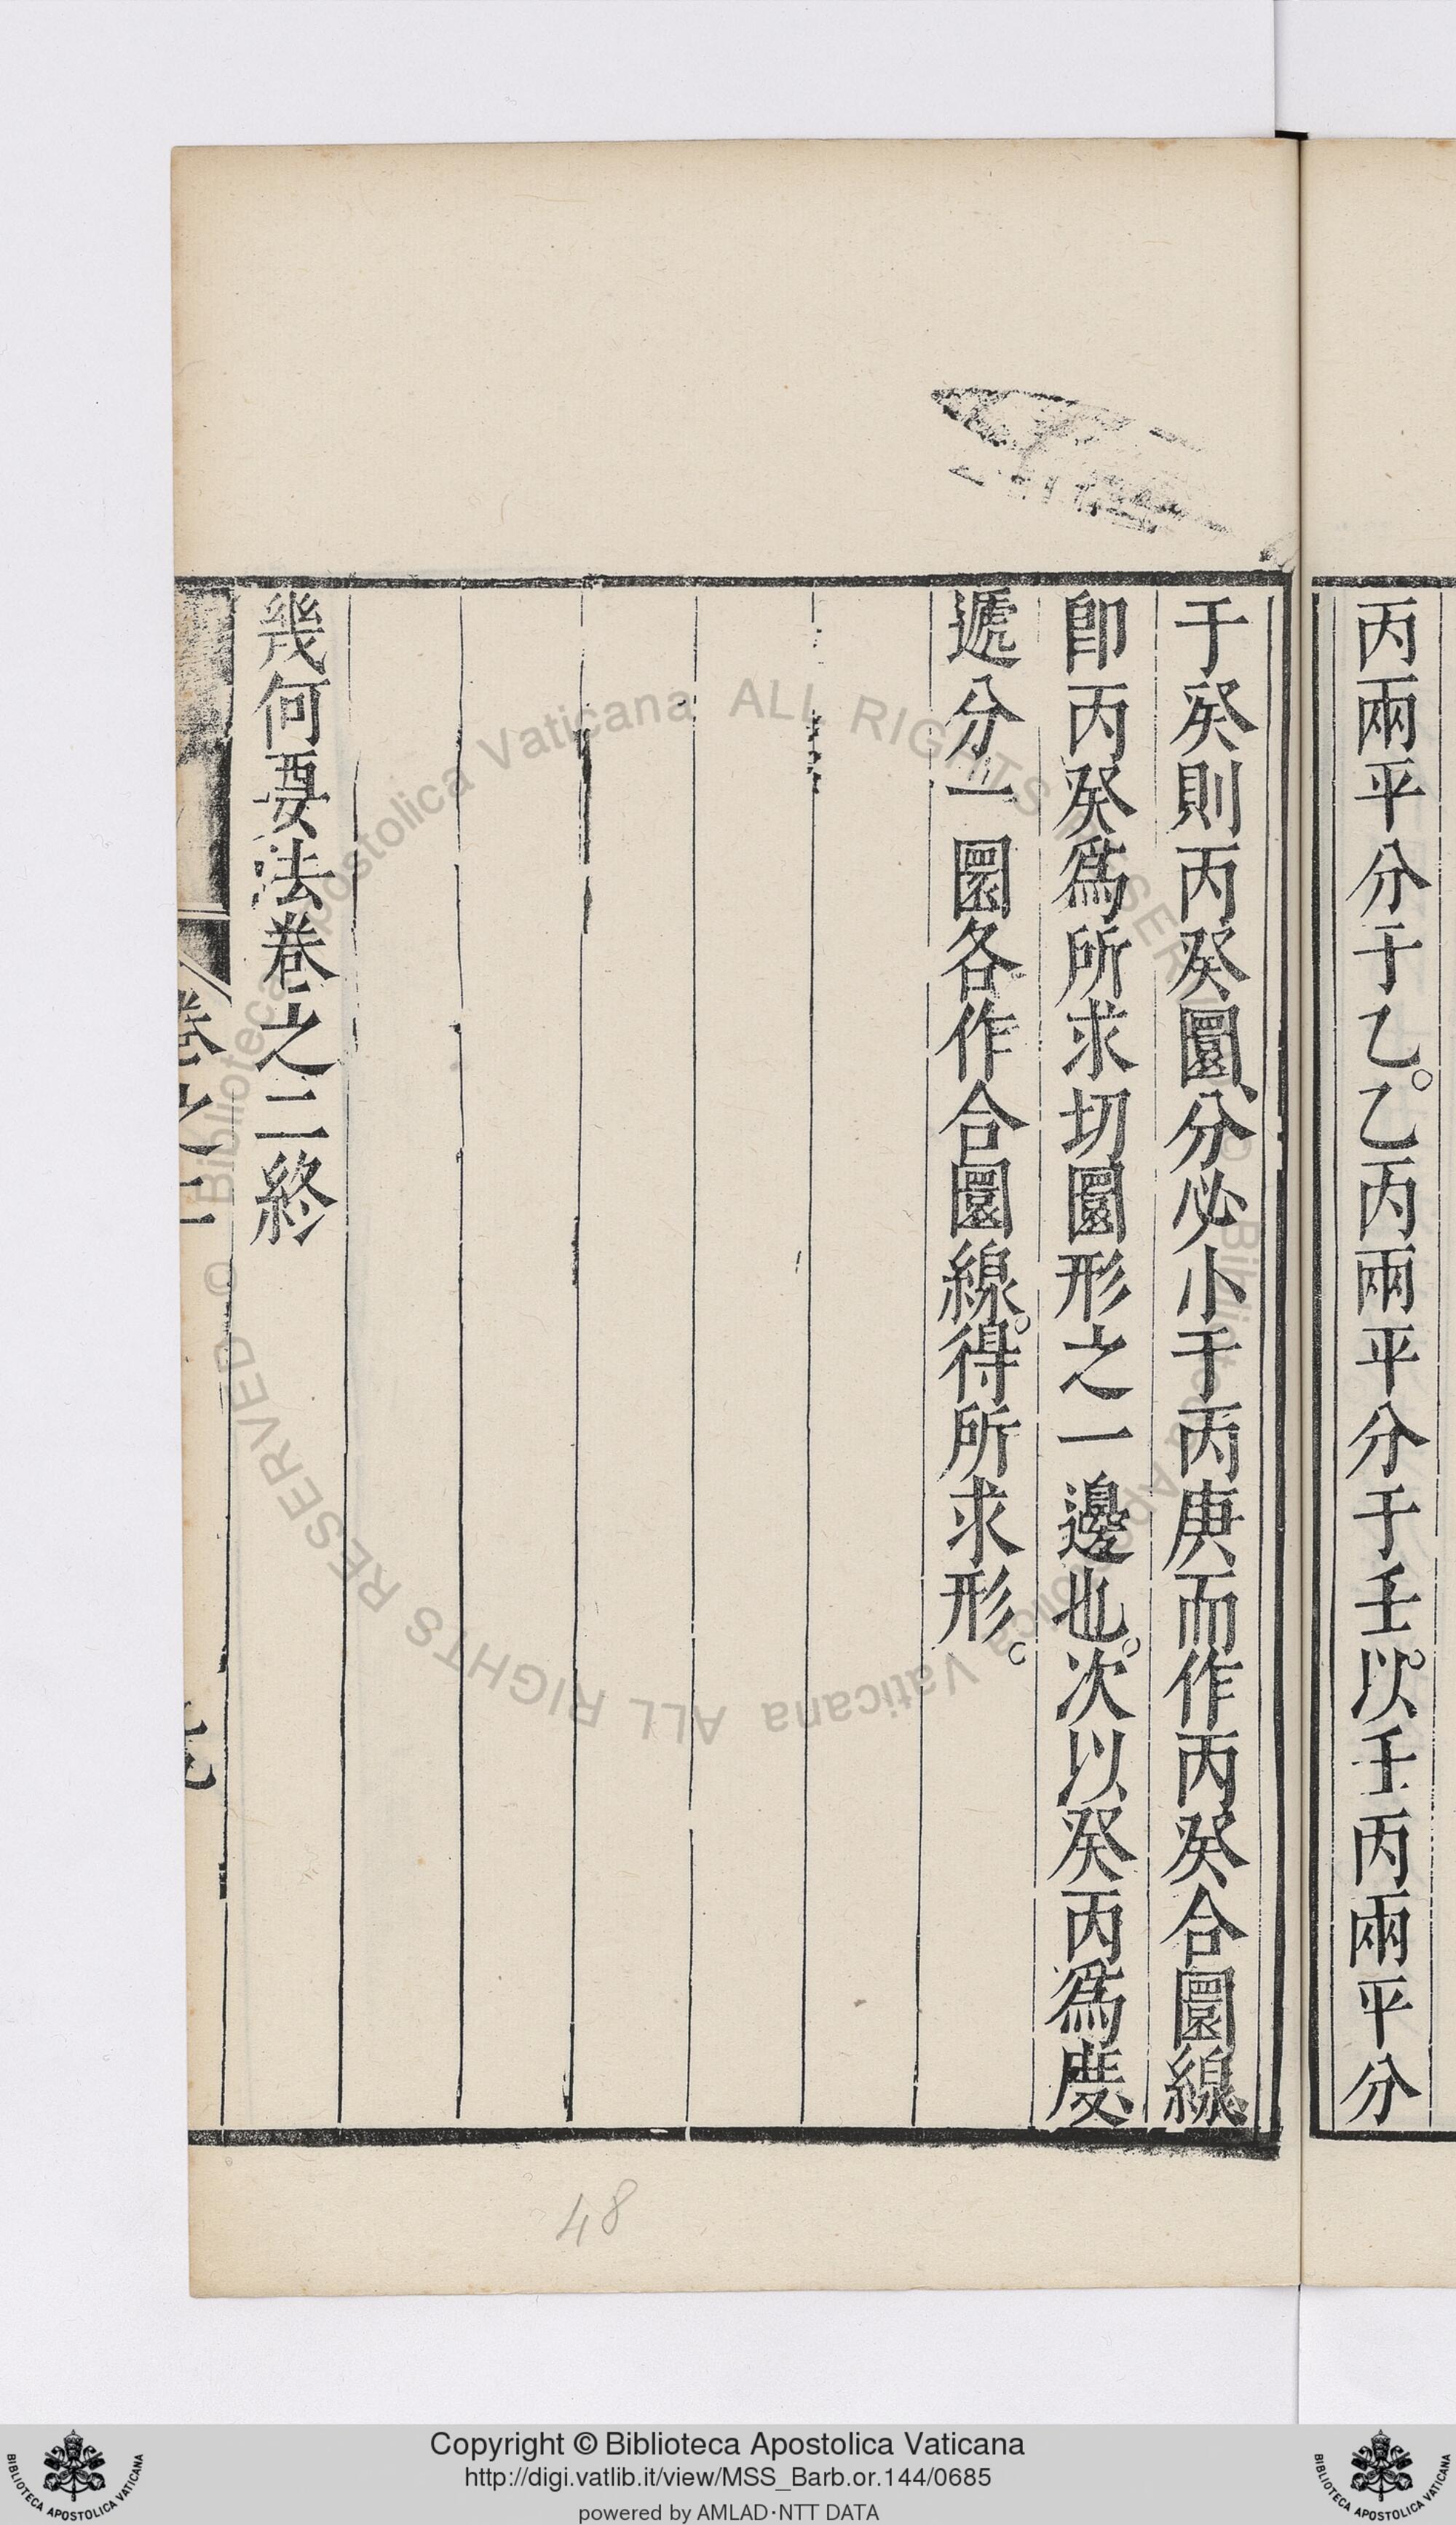 丙兩平分于乙。乙丙兩平分于壬。以壬丙兩平分
于癸則丙癸圜、分必小于丙庚而作丙癸合圜線、
卽丙癸爲所求切圜形之一邊也。次以癸丙爲度、
遞分一圜各作合圜線。得所求形。
幾何要法卷之二終
卷之二
48
Copyright © Biblioteca Apostolica Vaticana
http://digi.vatlib.it/view/MSS_Barb.or.144/0685
powered by AMLAD·NTT DATA
BIBLIOTECA APOSTOLICA VATICANA
BIBLIOTECA APOSTOLICA VATICANA
© Biblioteca Apostolica Vaticana ALL RIGHTS RESERVED
© Biblioteca Apostolica Vaticana ALL RIGHTS RESERVED